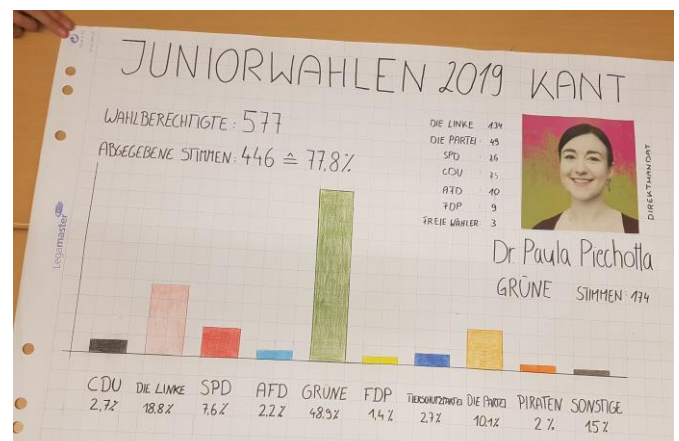 JUNIORWAHLEN 2019 KANT
WAHLBERECHTIGTE: 577
ABGEGEBENE STIMMEN: 446 ≙ 77.8%
DIE LINKE 134
DIE PARTEI: 49
SPD : 26
CDU : 25
AFD : 10
FDP : 9
FREIE WÄHLER: 3
DIREKTMANDAT
Dr. Paula Piechotta
GRÜNE STIMMEN: 174
Legamaster
CDU DIE LINKE SPD AFD GRÜNE FDP TIERSCHUTZPARTEI DIE PARTEI PIRATEN SONSTIGE
2,7% 18.8% 7.6% 2.2% 48.9% 1,4% 2.7% 10.1% 2% 15%